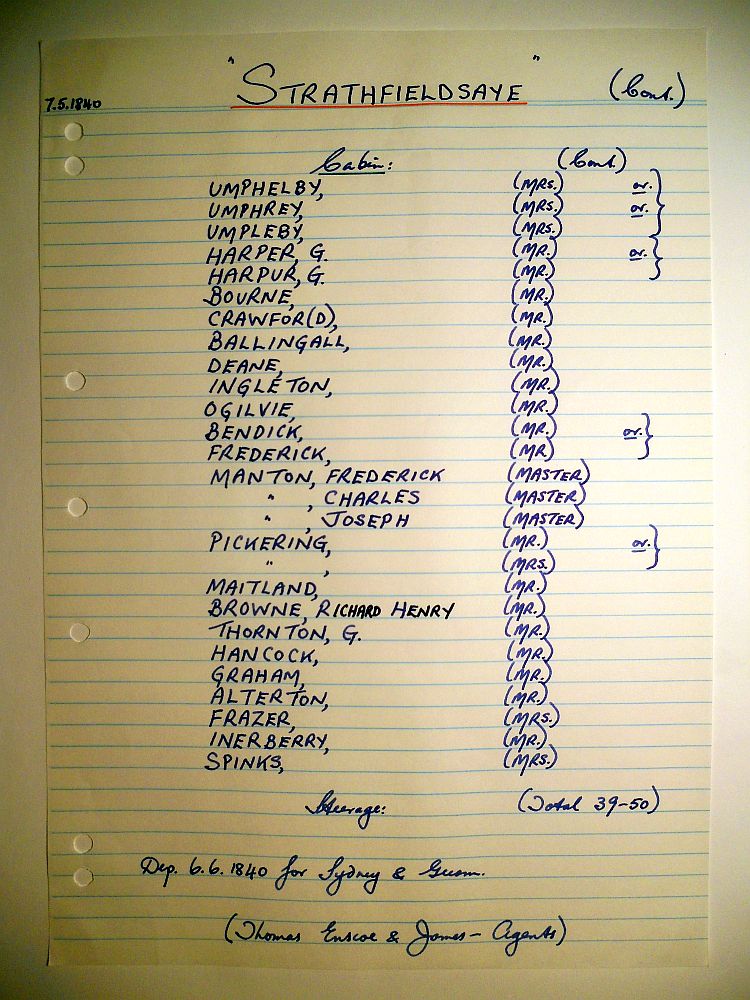 7.5.1840 "STRATHFIELDSAYE" (Cont.)
Cabin: (Cont.)
UMPHELBY, (MRS.) or. }
UMPHREY, (MRS.) or.
UMPLEBY, (MRS.)
HARPER, G. (MR.) or. }
HARPUR, G. (MR.)
BOURNE, (MR.)
CRAWFOR(D), (MR.)
BALLINGALL, (MR.)
DEANE, (MR.)
INGLETON, (MR.)
OGILVIE, (MR.)
BENDICK, (MR.) or. }
FREDERICK, (MR)
MANTON, FREDERICK (MASTER)
" , CHARLES (MASTER)
" , JOSEPH (MASTER)
PICKERING, (MR.) or. }
" , (MRS.)
MAITLAND, (MR.)
BROWNE, RICHARD HENRY (MR.)
THORNTON, G. (MR.)
HANCOCK, (MR.)
GRAHAM, (MR.)
ALTERTON, (MR.)
FRAZER, (MRS.)
INERBERRY, (MR.)
SPINKS, (MRS.)
Steerage: (Total 39-50)
Dep. 6.6.1840 for Sydney & Guam.
(Thomas Enscoe & James - Agents)